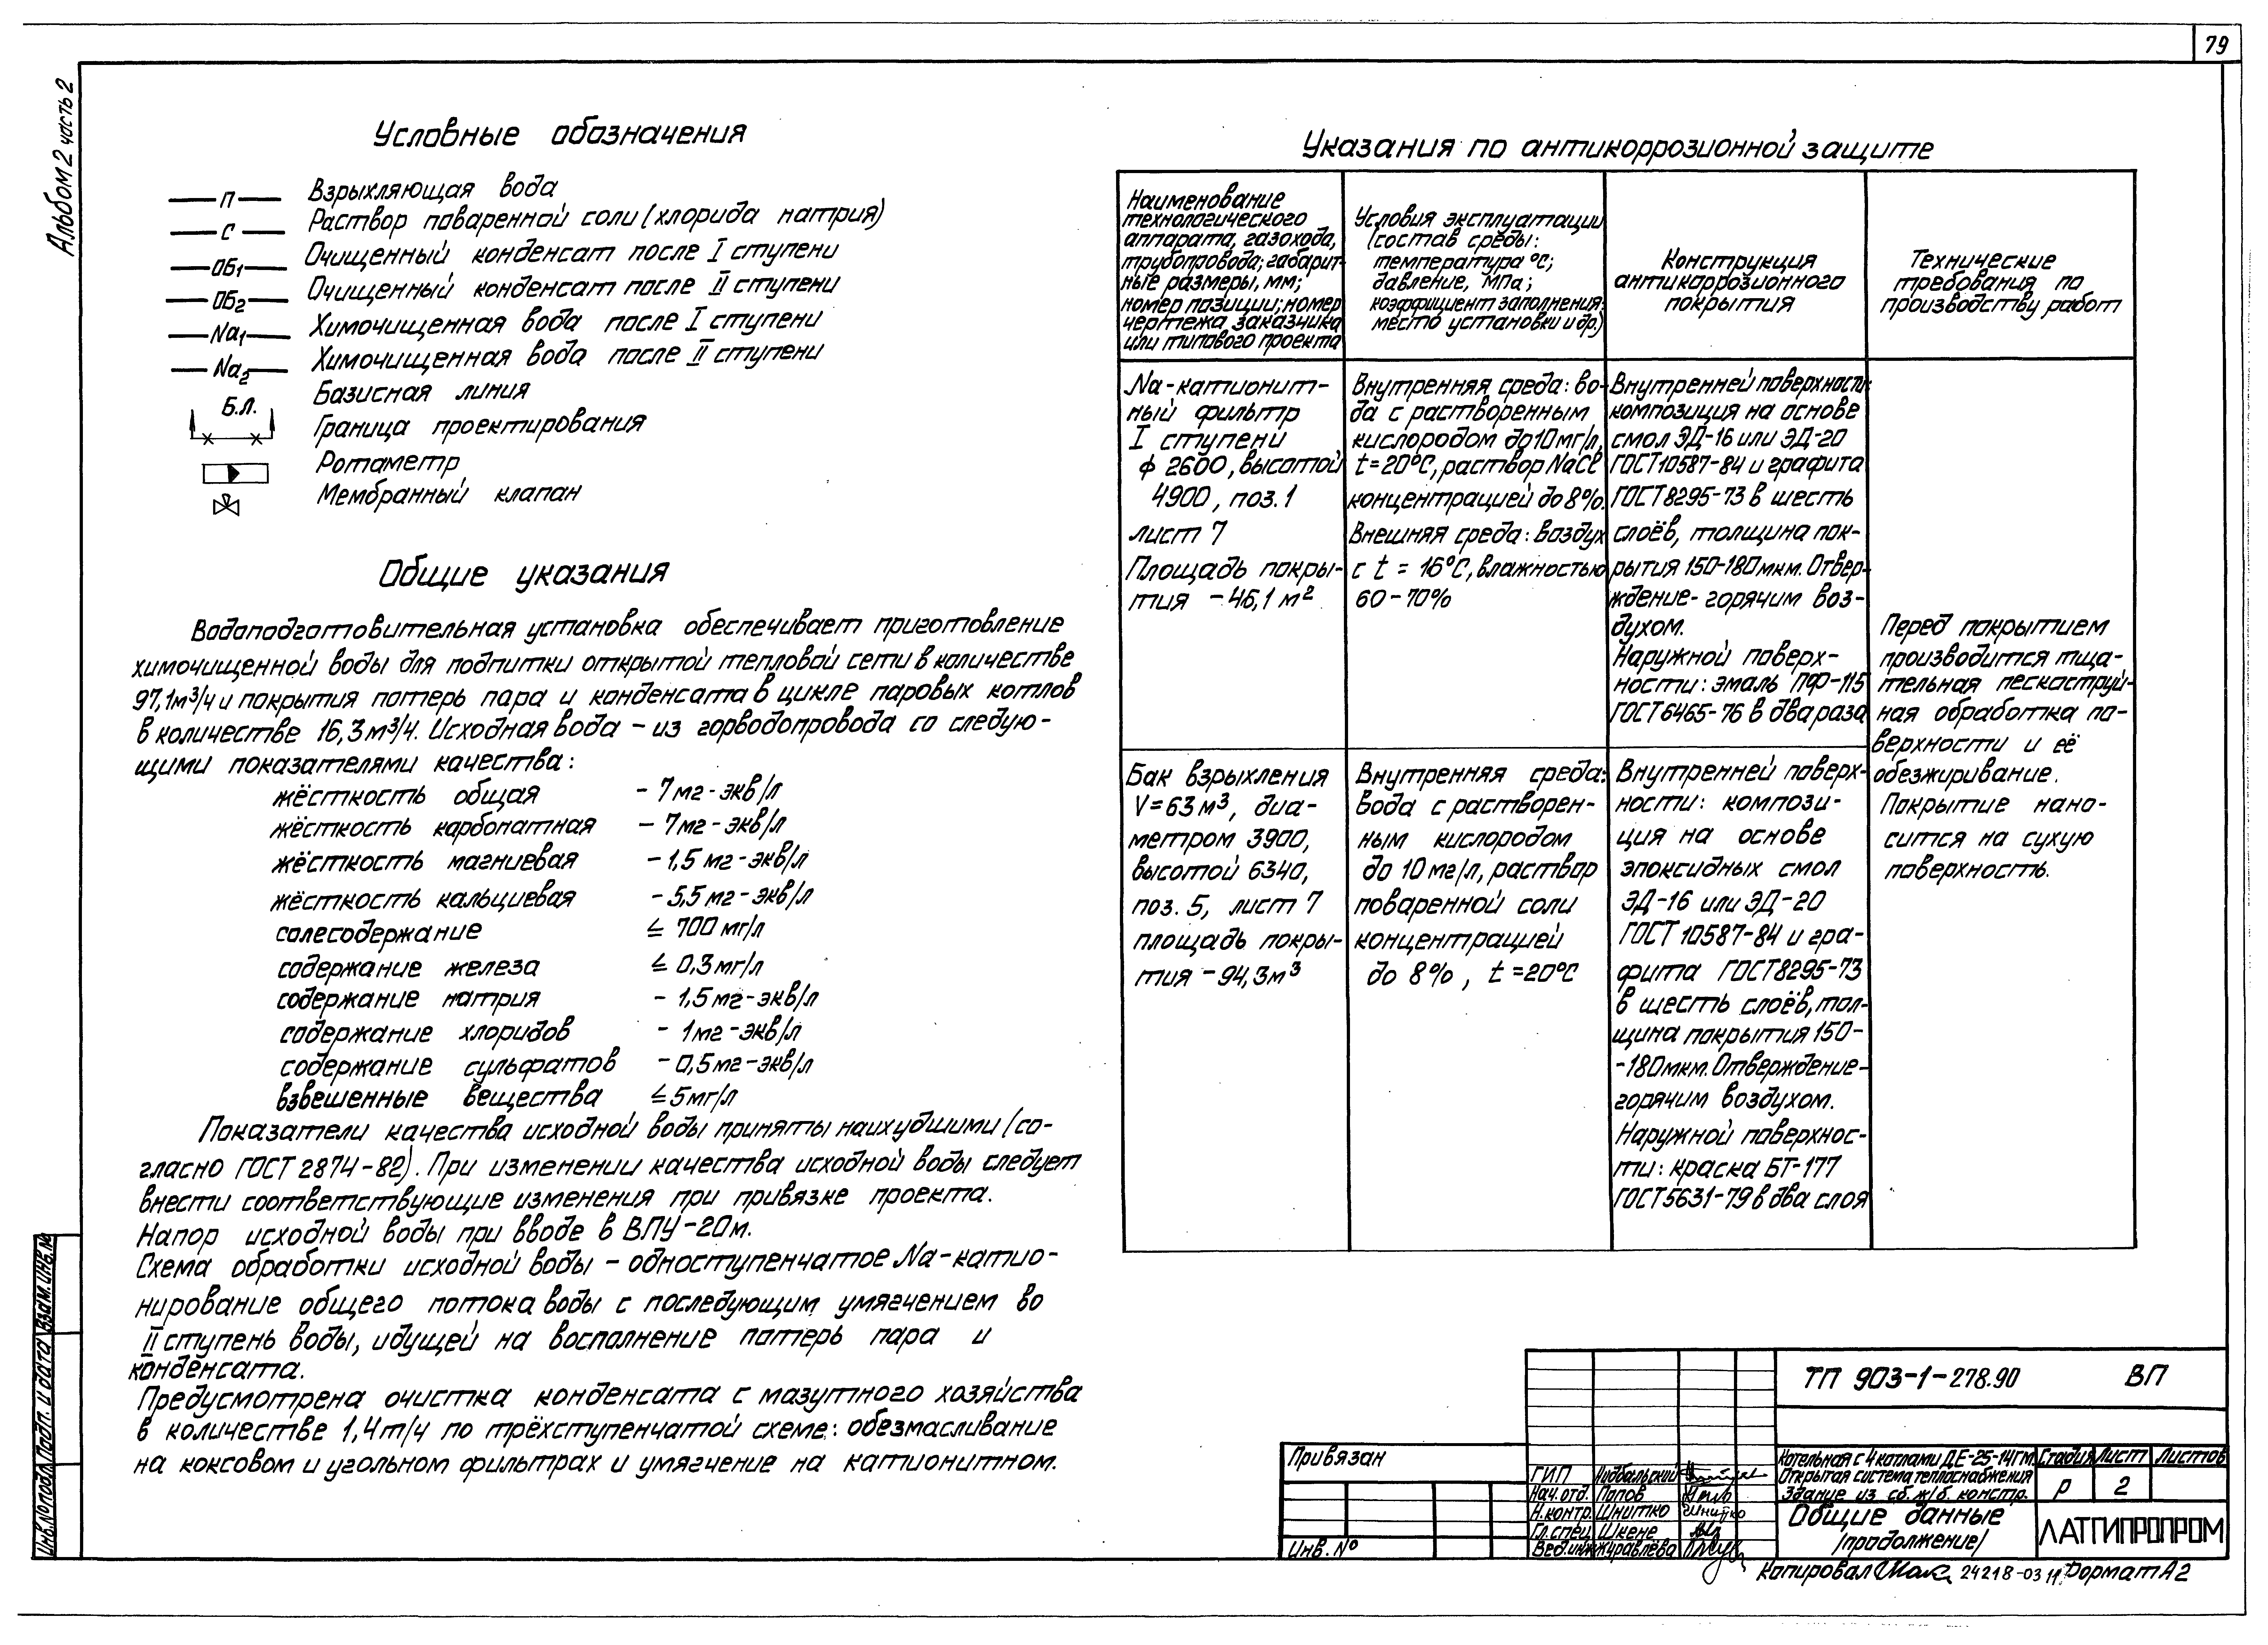 79
Альбом 2 часть 2
Условные обозначения
П Взрыхляющая вода
С Раствор поваренной соли (хлорида натрия)
ОБ1 Очищенный конденсат после I ступени
ОБ2 Очищенный конденсат после II ступени
Na1 Химочищенная вода после I ступени
Na2 Химочищенная вода после II ступени
Б.Л. Базисная линия
Граница проектирования
Ротаметр
Мембранный клапан
Общие указания
Водоподготовительная установка обеспечивает приготовление
химочищенной воды для подпитки открытой тепловой сети в количестве
97,1м³/ч и покрытия потерь пара и конденсата в цикле паровых котлов
в количестве 16,3 м³/ч. Исходная вода – из горводопровода со следую-
щими показателями качества:
жёсткость общая - 7 мг-экв/л
жёсткость карбонатная - 7мг-экв/л
жёсткость магниевая - 1,5 мг-экв/л
жёсткость кальциевая - 5,5 мг-экв/л
солесодержание ≤ 700 мг/л
содержание железа ≤ 0,3мг/л
содержание натрия - 1,5мг-экв/л
содержание хлоридов - 1мг-экв/л
содержание сульфатов - 0,5мг-экв/л
взвешенные вещества ≤5мг/л
Показатели качества исходной воды приняты наихудшими (со-
гласно ГОСТ 2874-82). При изменении качества исходной воды следует
внести соответствующие изменения при привязке проекта.
Напор исходной воды при вводе в ВПУ-20м.
Схема обработки исходной воды – одноступенчатое Na-катио-
нирование общего потока воды с последующим умягчением во
II ступень воды, идущей на восполнение потерь пара и
конденсата.
Предусмотрена очистка конденсата с мазутного хозяйства
в количестве 1,4т/ч по трёхступенчатой схеме: обезмасливание
на коксовом и угольном фильтрах и умягчение на катионитном.
Указания по антикоррозионной защите
Наименование
технологического
аппарата, газохода,
трубопровода; габарит-
ные размеры, мм;
номер позиции; номер
чертежа заказчика
или типового проекта
Условия эксплуатации
(состав среды:
температура °С;
давление, МПа;
коэффициент заполнения;
место установки и др.)
Конструкция
антикоррозионного
покрытия
Технические
требования по
производству работ
Na-катионит-
ный фильтр
I ступени
ф 2600, высотой
4900, поз. 1
лист 7
Площадь покры-
тия - 46,1 м²
Внутренняя среда: во-
да с растворенным
кислородом до 10мг/л,
t=20°С, раствор NaCl
концентрацией до 8%.
Внешняя среда: воздух
с t = 16°С, влажностью
60-70%
Внутренней поверхности:
композиция на основе
смол ЭД-16 или ЭД-20
ГОСТ10587-84 и графита
ГОСТ8295-73 в шесть
слоёв, толщина пок-
рытия 150-180мкм. Отвер-
ждение- горячим воз-
духом.
Наружной поверх-
ности: эмаль ПФ-115
ГОСТ6465-76 в два раза
Бак взрыхления
V=63 м³, диа-
метром 3900,
высотой 6340,
поз. 5, лист 7
площадь покры-
тия - 94,3м³
Внутренняя среда:
вода с растворен-
ным кислородом
до 10 мг/л, раствор
поваренной соли
концентрацией
до 8%, t=20°С
Внутренней поверх-
ности: компози-
ция на основе
эпоксидных смол
ЭД-16 или ЭД-20
ГОСТ 10587-84 и гра-
фита ГОСТ8295-73
в шесть слоёв, тол-
щина покрытия 150-
-180мкм. Отверждение-
горячим воздухом.
Наружной поверхнос-
ти: краска БТ-177
ГОСТ5631-79 в два слоя
Перед покрытием
производится тща-
тельная пескоструй-
ная обработка по-
верхности и её
обезжиривание.
Покрытие нано-
сится на сухую
поверхность.
Взам. инв. №
Подп. и дата
Инв. № подл.
Привязан
Инв. №
ГИП
Нач. отд. Попов
Н. контр. Шнитко
Гл. спец. Шкене
Вед. инж. Журавлёва
ТП 903-1-278.90 ВП
Котельная с 4 котлами ДЕ-25-14ГМ.
Открытая система теплоснабжения
Здание из сб. ж/б. констр.
Стадия Лист Листов
Р 2
Общие данные
/продолжение/
ЛАТГИПРОПРОМ
Копировал 24218-03 Формат А2